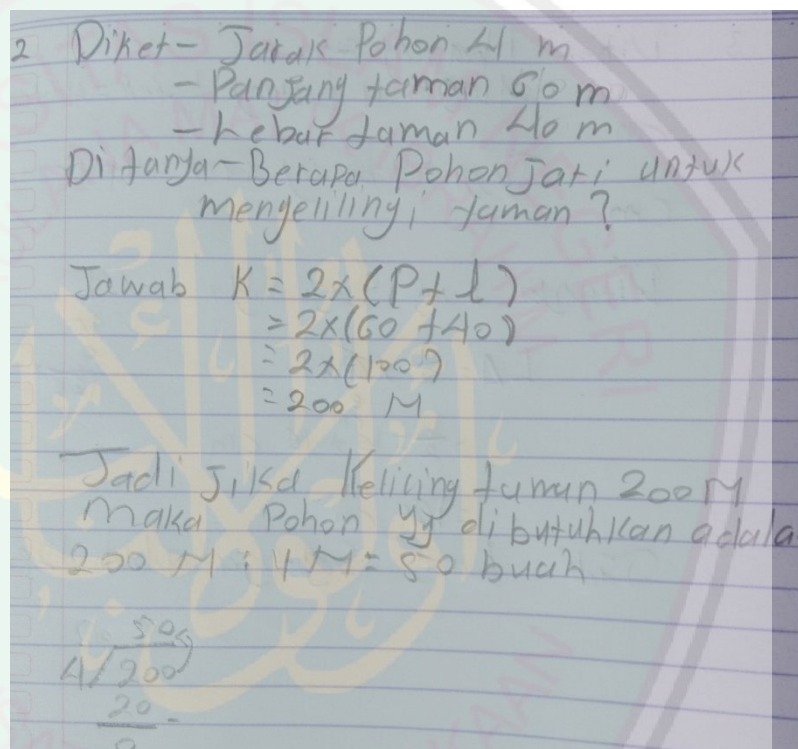 2 Diket - Jarak Pohon 4 m
- Panjang taman 60 m
- Lebar taman 40 m
Ditanya - Berapa Pohon jati untuk
mengelilingi taman?
Jawab K = 2x(P+l)
= 2x(60+40)
= 2x(100)
= 200 M
Jadi jika Keliling taman 200 M
Maka Pohon yg dibutuhkan adala
200 M : 4 M = 50 buah
50
4/200
20 -
0